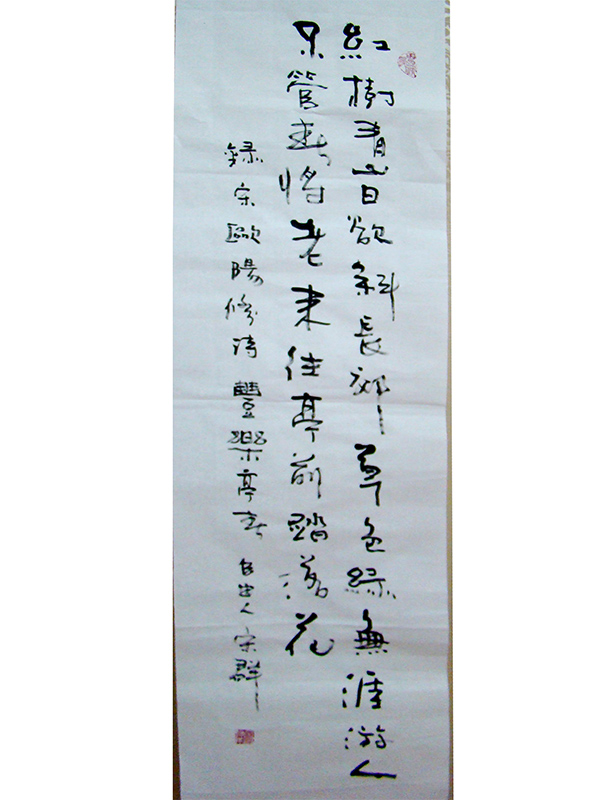 紅樹青山日欲斜長郊草色綠無涯游人
不管春將老來往亭前踏落花
錄宋歐陽修诗豐樂亭春 自由人宗群